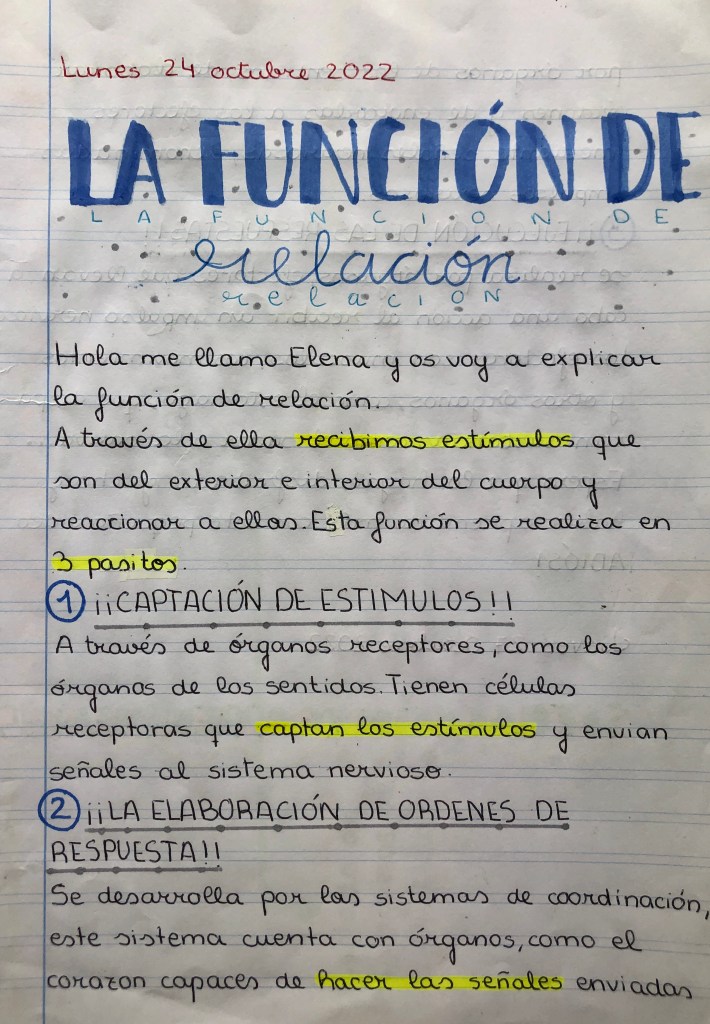 Lunes 24 octubre 2022
LA FUNCIÓN DE
LA FUNCION DE
relación
relacion
Hola me llamo Elena y os voy a explicar
la función de relación.
A través de ella recibimos estímulos que
son del exterior e interior del cuerpo y
reaccionar a ellas. Esta función se realiza en
3 pasitos.
1 ¡¡CAPTACIÓN DE ESTIMULOS!!
A través de órganos receptores, como los
órganos de los sentidos. Tienen células
receptoras que captan los estímulos y envian
señales al sistema nervioso.
2 ¡¡LA ELABORACIÓN DE ORDENES DE
RESPUESTA!!
Se desarrolla por los sistemas de coordinación,
este sistema cuenta con órganos, como el
corazon capaces de hacer las señales enviadas